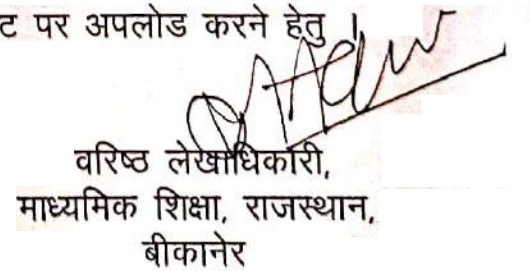 ट पर अपलोड करने हेतु ।
वरिष्ठ लेखाधिकारी,
माध्यमिक शिक्षा, राजस्थान,
बीकानेर